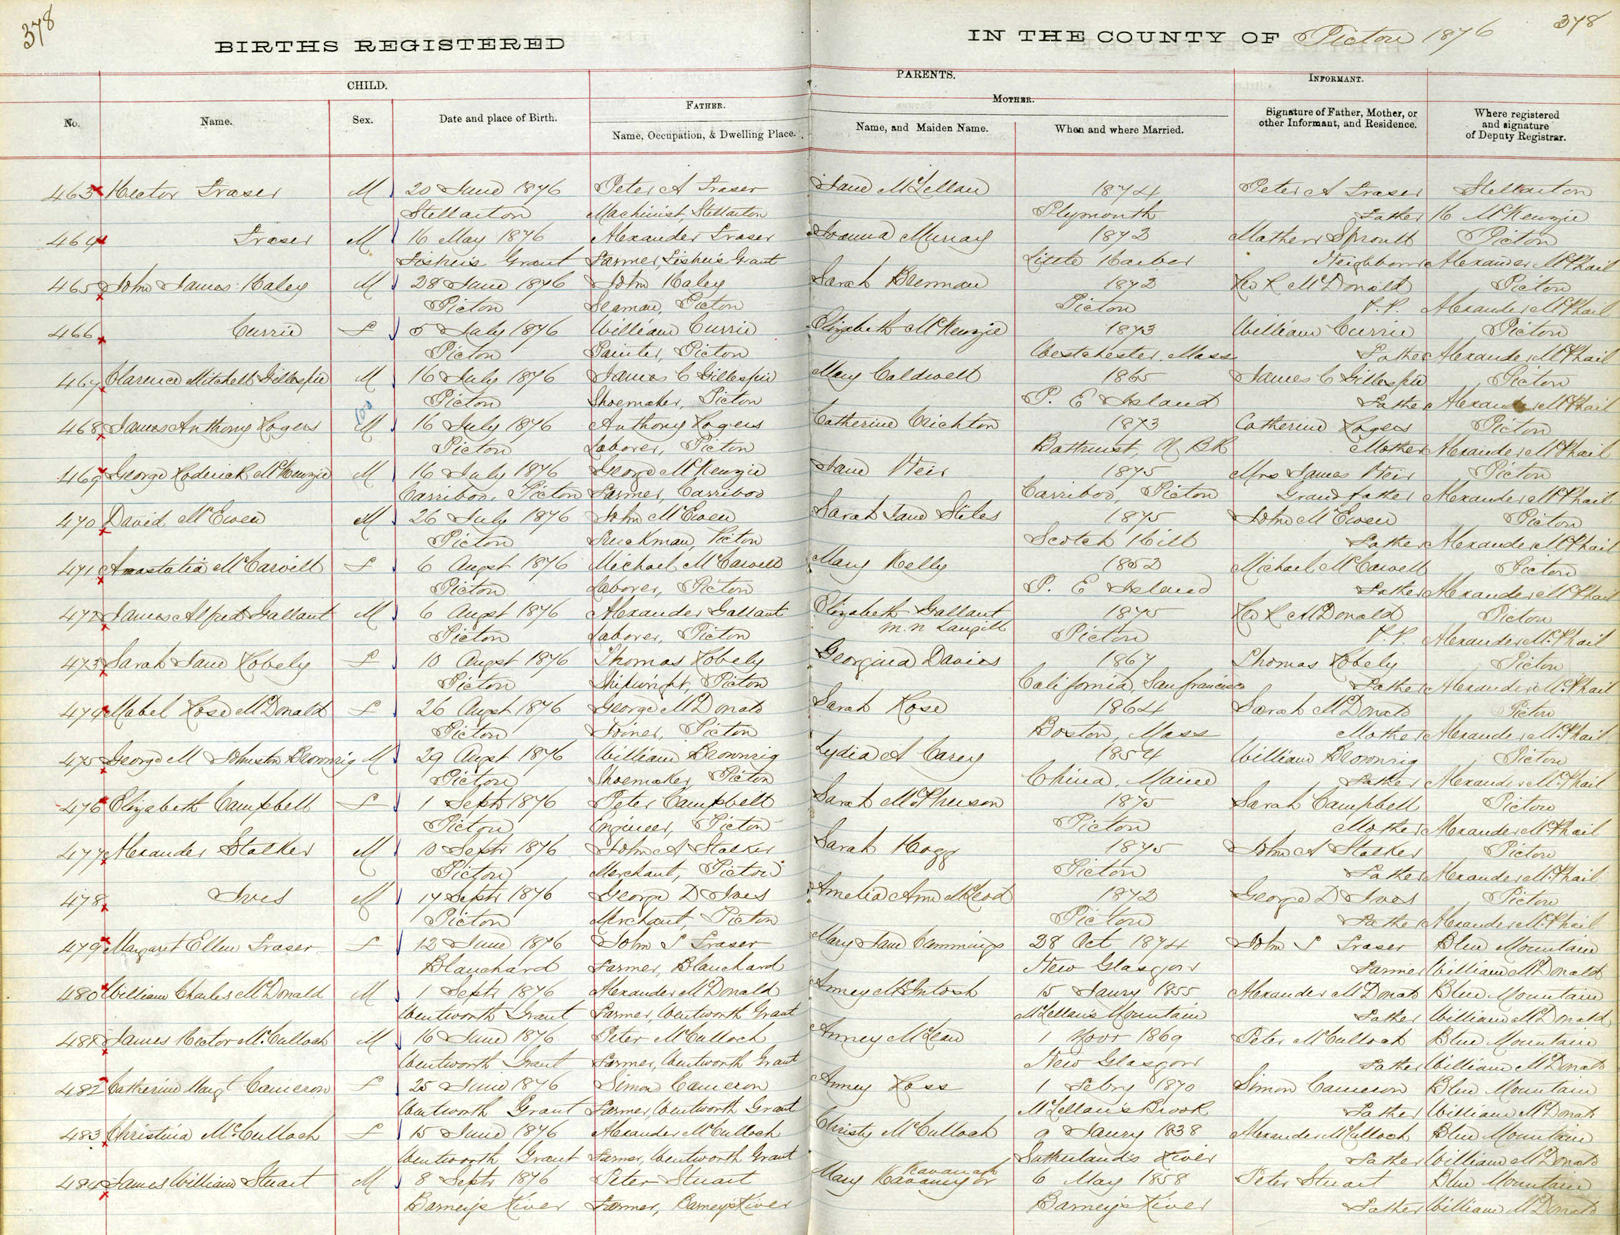 378
378
BIRTHS REGISTERED
IN THE COUNTY OF Pictou 1876
CHILD.
PARENTS.
INFORMANT.
No.
Name.
Sex.
Date and place of Birth.
FATHER.
Name, Occupation, & Dwelling Place.
MOTHER.
Name, and Maiden Name.
When and where Married.
Signature of Father, Mother, or
other Informant, and Residence.
Where registered
and signature
of Deputy Registrar.
463 Hector Fraser M 20 June 1876 Peter A Fraser Jane McLellan 1874 Peter A Fraser Stellarton
Stellarton Machinist, Stellarton Plymouth Father H McKenzie
464 Fraser M 16 May 1876 Alexander Fraser Joanna Murray 1872 Mathew Sproull Pictou
Fishers Grant Farmer, Fishers Grant Little Harber Neighbour Alexander McPhail
465 John James Haley M 28 June 1876 John Haley Sarah Brennan 1872 R McDonald Pictou
Pictou Seaman, Pictou Pictou P.P. Alexander McPhail
466 Currie F 5 July 1876 William Currie Elizabeth McKenzie 1873 William Currie Pictou
Pictou Painter, Pictou Westchester, Mass Father Alexander McPhail
467 Clarence Mitchell Gillespie M 16 July 1876 James C Gillespie Mary Caldwell 1865 James C Gillespie Pictou
Pictou Shoemaker, Pictou P. E Island Father Alexander McPhail
468 James Anthony Rogers M 16 July 1876 Anthony Rogers Catherine Crichton 1873 Catherine Rogers Pictou
Pictou Laborer, Pictou Bathurst, N BK Mother Alexander McPhail
469 George Roderick McKenzie M 16 July 1876 George McKenzie Jane Weir 1875 Mrs James Weir Pictou
Carriboo, Pictou Farmer, Carriboo Carriboo, Pictou Grand father Alexander McPhail
470 David McEwen M 26 July 1876 John McEwen Sarah Jane Stiles 1875 John McEwen Pictou
Pictou Truckman, Pictou Scotch Hill Father Alexander McPhail
471 Anastatia McCarvill F 6 Augst 1876 Michael McCarvill Mary Kelly 1862 Michael McCarvell Pictou
Pictou Laborer, Pictou P. E Island Father Alexander McPhail
472 James Alfred Gallant M 6 Augst 1876 Alexander Gallant Elizabeth Gallant 1875 R McDonald Pictou
m.n Langill
Pictou Laborer, Pictou Pictou P.P. Alexander McPhail
473 Sarah Jane Robely F 10 Augst 1876 Thomas Robely Georgina Davies 1867 Thomas Robely Pictou
Pictou Shipwright Pictou California, Sanfrancisco Father Alexander McPhail
474 Mabel Rose McDonald F 26 Augst 1876 George McDonald Sarah Rose 1864 Sarah McDonald Pictou
Pictou Joiner, Pictou Boston, Mass Mother Alexander McPhail
475 George M Johnston Brownrig M 29 Augst 1876 William Brownrig Lydia A Carey 1854 William Brownrig Pictou
Pictou Shoemaker, Pictou China, Maine Father Alexander McPhail
476 Elizabeth Campbell F 1 Septr 1876 Peter Campbell Sarah McPherson 1875 Sarah Campbell Pictou
Pictou Engineer, Pictou Pictou Mother Alexander McPhail
477 Alexander Stalker M 10 Septr 1876 John A Stalker Sarah Hogg 1875 John A Stalker Pictou
Pictou Merchant, Pictou Pictou Father Alexander McPhail
478 Ives M 17 Septr 1876 George D Ives Amelia Ann McLeod 1872 George D Ives Pictou
Pictou Merchant, Pictou Pictou Father Alexander McPhail
479 Margaret Ellen Fraser F 12 June 1876 John S Fraser Mary Jane Cammings 28 Oct 1874 John S Fraser Blue Mountain
Blanchard Farmer, Blanchard New Glasgow Farmer William McDonald
480 William Charles McDonald M 1 Septr 1876 Alexander McDonald Anney McIntosh 15 Janry 1855 Alexander McDonald Blue Mountain
Wentworth Grant Farmer, Wentworth Grant McLellans Mountain Father William McDonald
481 James Hector McCulloch M 16 June 1876 Peter McCulloch Anney McLean 1 Novr 1869 Peter McCulloch Blue Mountain
Wentworth Grant Farmer, Wentworth Grant New Glasgow Father William McDonald
482 Catherine Margt Cameron F 25 June 1876 Simon Cameron Anney Ross 1 Febry 1870 Simon Cameron Blue Mountain
Wentworth Grant Farmer, Wentworth Grant McLellan's Brook Father William McDonald
483 Christina McCulloch F 15 June 1876 Alexander McCulloch Christy McCulloch 9 Janry 1838 Alexander McCulloch Blue Mountain
Wentworth Grant Farmer, Wentworth Grant Sutherlands River Father William McDonald
Kavanagh
484 James William Stuart M 8 Septr 1876 Peter Stuart Mary or 6 May 1858 Peter Stuart Blue Mountain
Barneys River Farmer, Barneys River Barneys River Father William McDonald